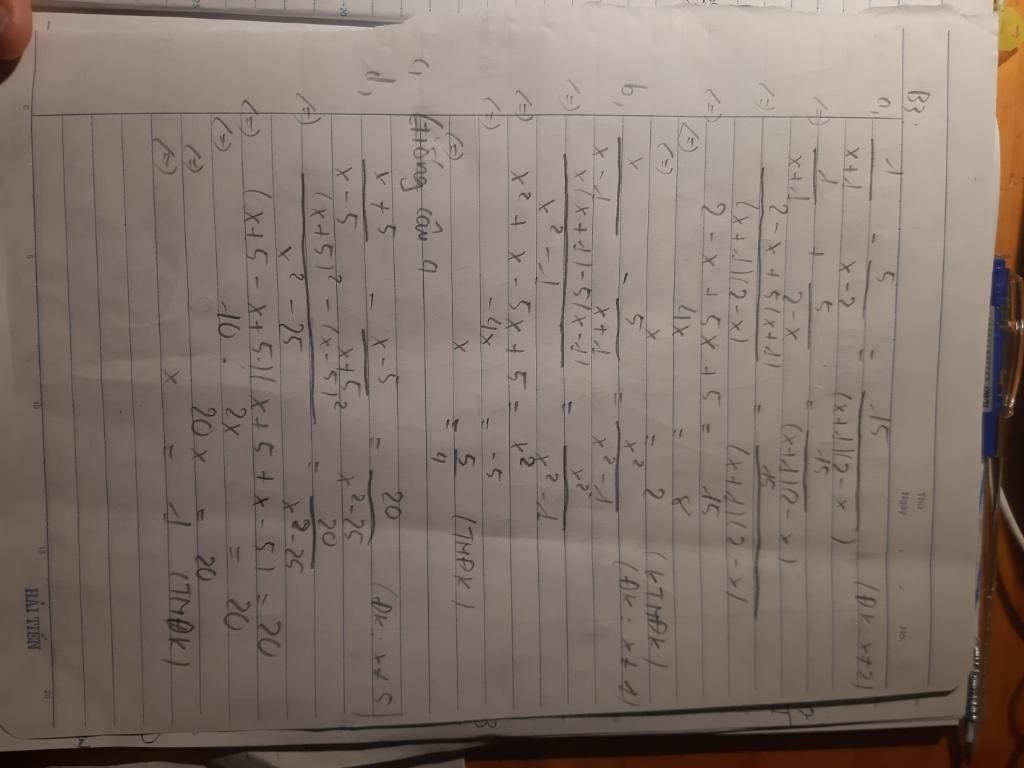 Thứ
Ngày No.
B3.
a, 1/(x+1) - 5/(x-2) = 15/((x+1)(2-x)) (ĐK: x≠2)
(=) 1/(x+1) + 5/(2-x) = 15/((x+1)(2-x))
(=) (2-x+5(x+1))/((x+1)(2-x)) = 15/((x+1)(2-x))
(=) 2-x+5x+5 = 15
(=) 4x = 8
(=) x = 2 (KTMĐK)
b, x/(x-1) - 5/(x+1) = x²/(x²-1) (ĐK: x≠1)
(=) (x(x+1)-5(x-1))/(x²-1) = x²/(x²-1)
(=) x²+x-5x+5 = x²
(=) -4x = -5
(=) x = 5/4 (TMĐK)
c, Giống câu a
d, (x+5)/(x-5) - (x-5)/(x+5) = 20/(x²-25) (ĐK: x≠5)
(=) ((x+5)²-(x-5)²)/(x²-25) = 20/(x²-25)
(=) (x+5-x+5)(x+5+x-5) = 20
(=) 10.2x = 20
(=) 20x = 20
(=) x = 1 (TMĐK)
0 5 10 15 20
HẢI TIẾN